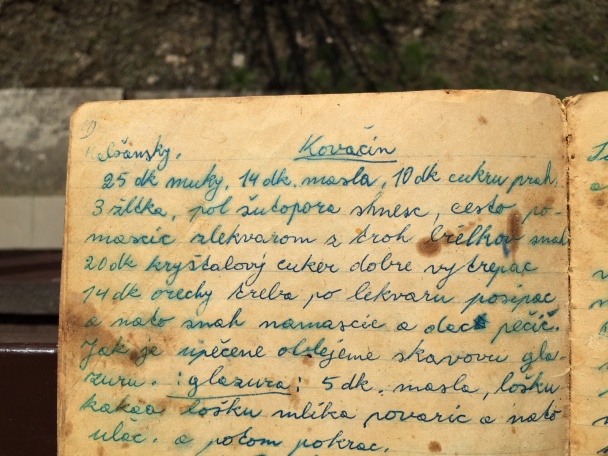 Kovačin
25 dk muky, 14 dk. masla, 10 dk cukru prah
3 žltka, pol šutopora shnesc, cesto po-
mascic zlekvarom z troh bilkov snah
20 dk kryštalový cuker dobre vytrepac
14 dk orechy treba po lekvaru posipac
a nato snah namascic a dac pečič.
Jak je upečene oblejeme skavovu gla-
zuru. :glazura: 5 dk. masla, lošku
kakaa lošku mlika povaric a nato
ulac. a potom pokrac.